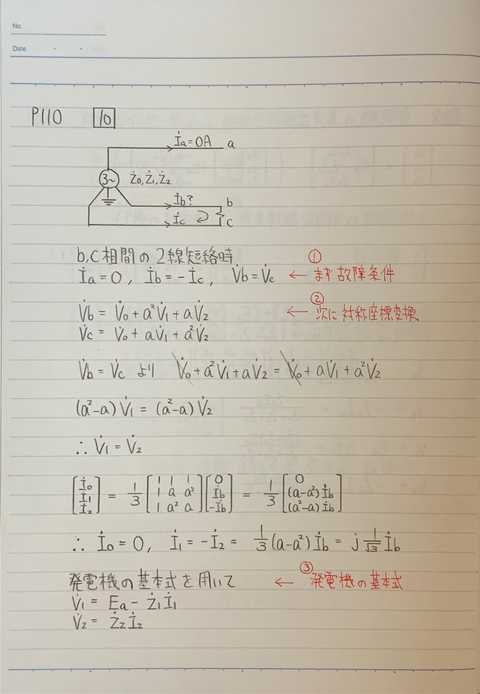 No.
Date
P110 10
İa=0A a
3~ Ż0,Ż1,Ż2
İb? b
İc c
b,c相間の2線短絡時 ①
İa=0, İb=-İc, V̇b=V̇c ← まず故障条件
②
V̇b = V̇0+a²V̇1+aV̇2 ← 次に対称座標変換、
V̇c = V̇0+aV̇1+a²V̇2
V̇b = V̇c より V̇0+a²V̇1+aV̇2 = V̇0+aV̇1+a²V̇2
(a²-a)V̇1 = (a²-a)V̇2
∴ V̇1 = V̇2
[İ0 İ1 İ2] = 1/3 [1 1 1 1 a a² 1 a² a] [0 İb -İb] = 1/3 [0 (a-a²)İb (a²-a)İb]
∴ İ0 = 0, İ1 = -İ2 = 1/3(a-a²)İb = j 1/√3 İb
③
発電機の基本式を用いて ← 発電機の基本式
V̇1 = Ėa - Ż1İ1
V̇2 = Ż2İ2